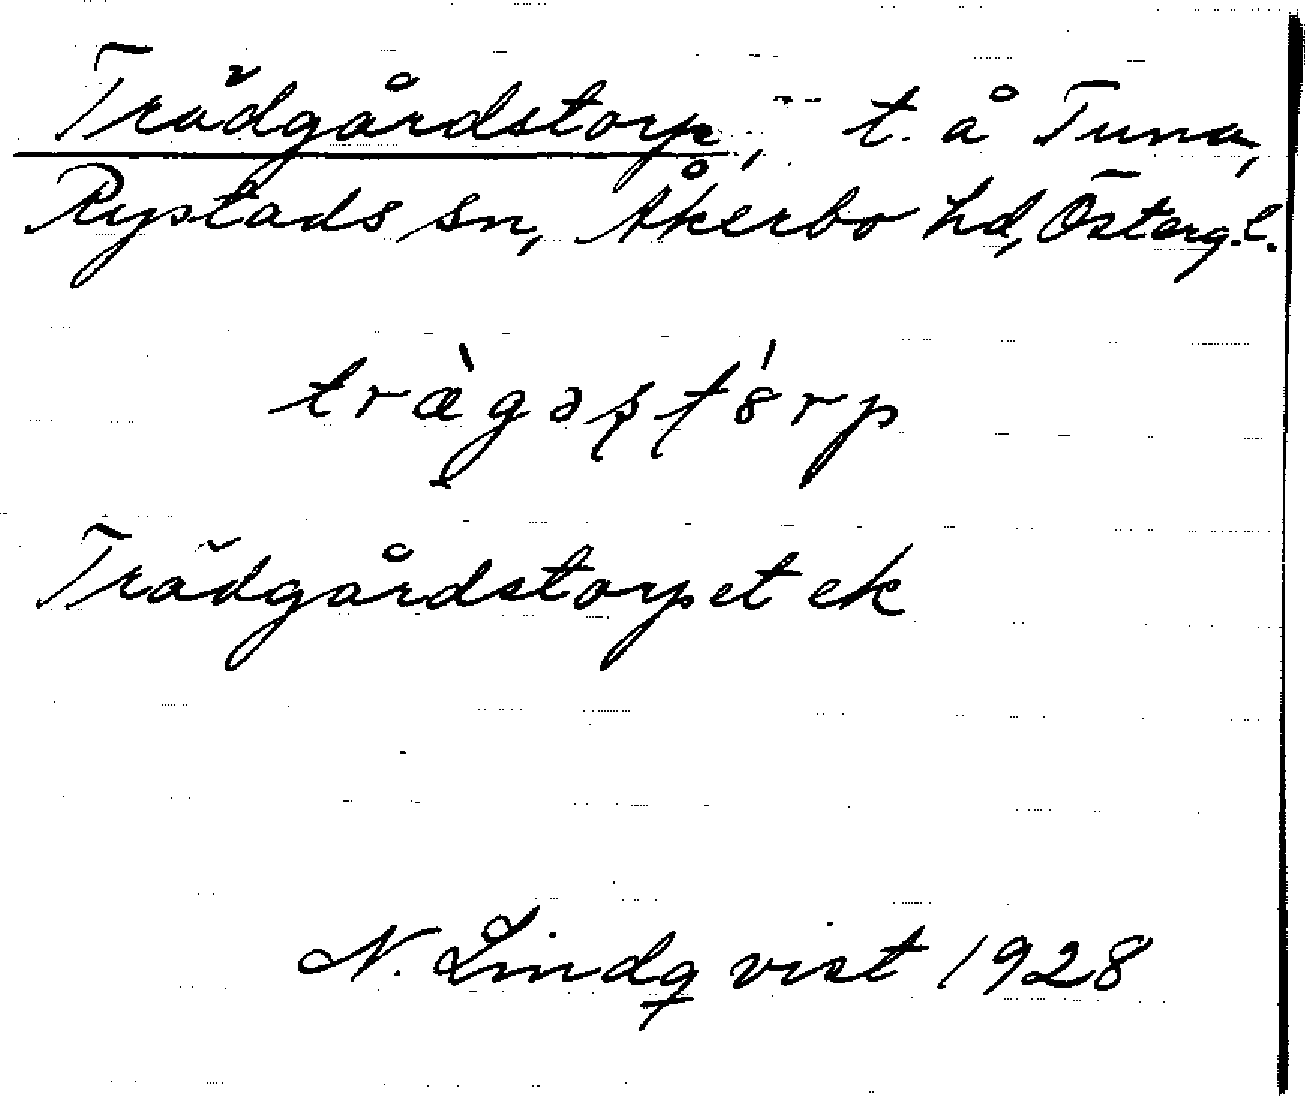 Trädgårdstorp, t. å Tuna,
Rystads sn, Åkerbo hd, Österg.l.
træ̀gəst́8rp
Trädgårdstorpet ek
N. Lindqvist 1928